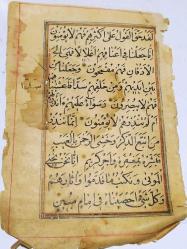 لقد حق القول على اكثرهم فهم لا يؤمنون
انا جعلنا في اعناقهم اغلالا فهي الى
الاذقان فهم مقمحون وجعلنا من
بين ايديهم سدا ومن خلفهم سدا فاغشيناهم
فهم لا يبصرون وسواء عليهم ءانذرتهم
ام لم تنذرهم لا يؤمنون انما تنذر
من اتبع الذكر وخشي الرحمن بالغيب
فبشره بمغفرة واجر كريم انا نحن نحي
الموتى ونكتب ما قدموا واثارهم
وكل شيء احصيناه في امام مبين